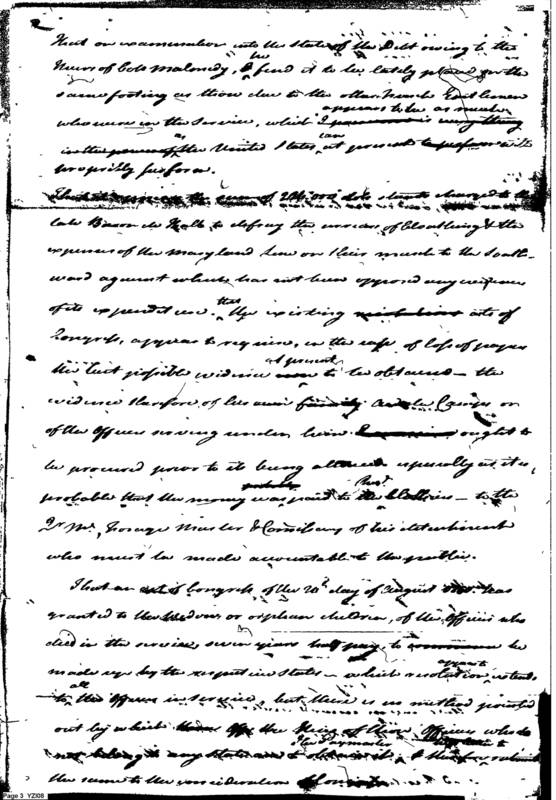 That on examination into the State of the Debt owing to the
Heirs of Colo Malmedy, I find it to be lately placed on the
same footing as those due to the other French Gentlemen
appears to be as much
who were in the Service, which
as can
the United States, at present with
propriety perform.
the sum of dols stands charged to the
late Baron de Kalb to defray the of Cloathing & the
expenses of the Maryland Line on their march to the South-
ward against which has not been opposed any evidence
of its expenditure. that the existing acts of
Congress, appears to require, in the case of loss of papers
at present
the best possible evidence to be obtained - the
evidence therefore of his own family or
of the Officers serving under him ought to
be procured prior to its being allowed especially as it is
probable that the money was paid to the - to the
Qr Mr, Forage Master & Comissary of his detachment
who must be made accountable to the public.
That an act of Congress of the day of August has
granted to the Widows or orphan children, of the Officers who
died in the service, seven years half pay, to be
made up by the respective States - which resolution extends
appears to
to all the Officers in service, but there is no method pointed
out by which the Heirs of those Officers who do
not belong to any State are to obtain it, & therefore submit
the same to the consideration of Congress
Page 3 YZI08